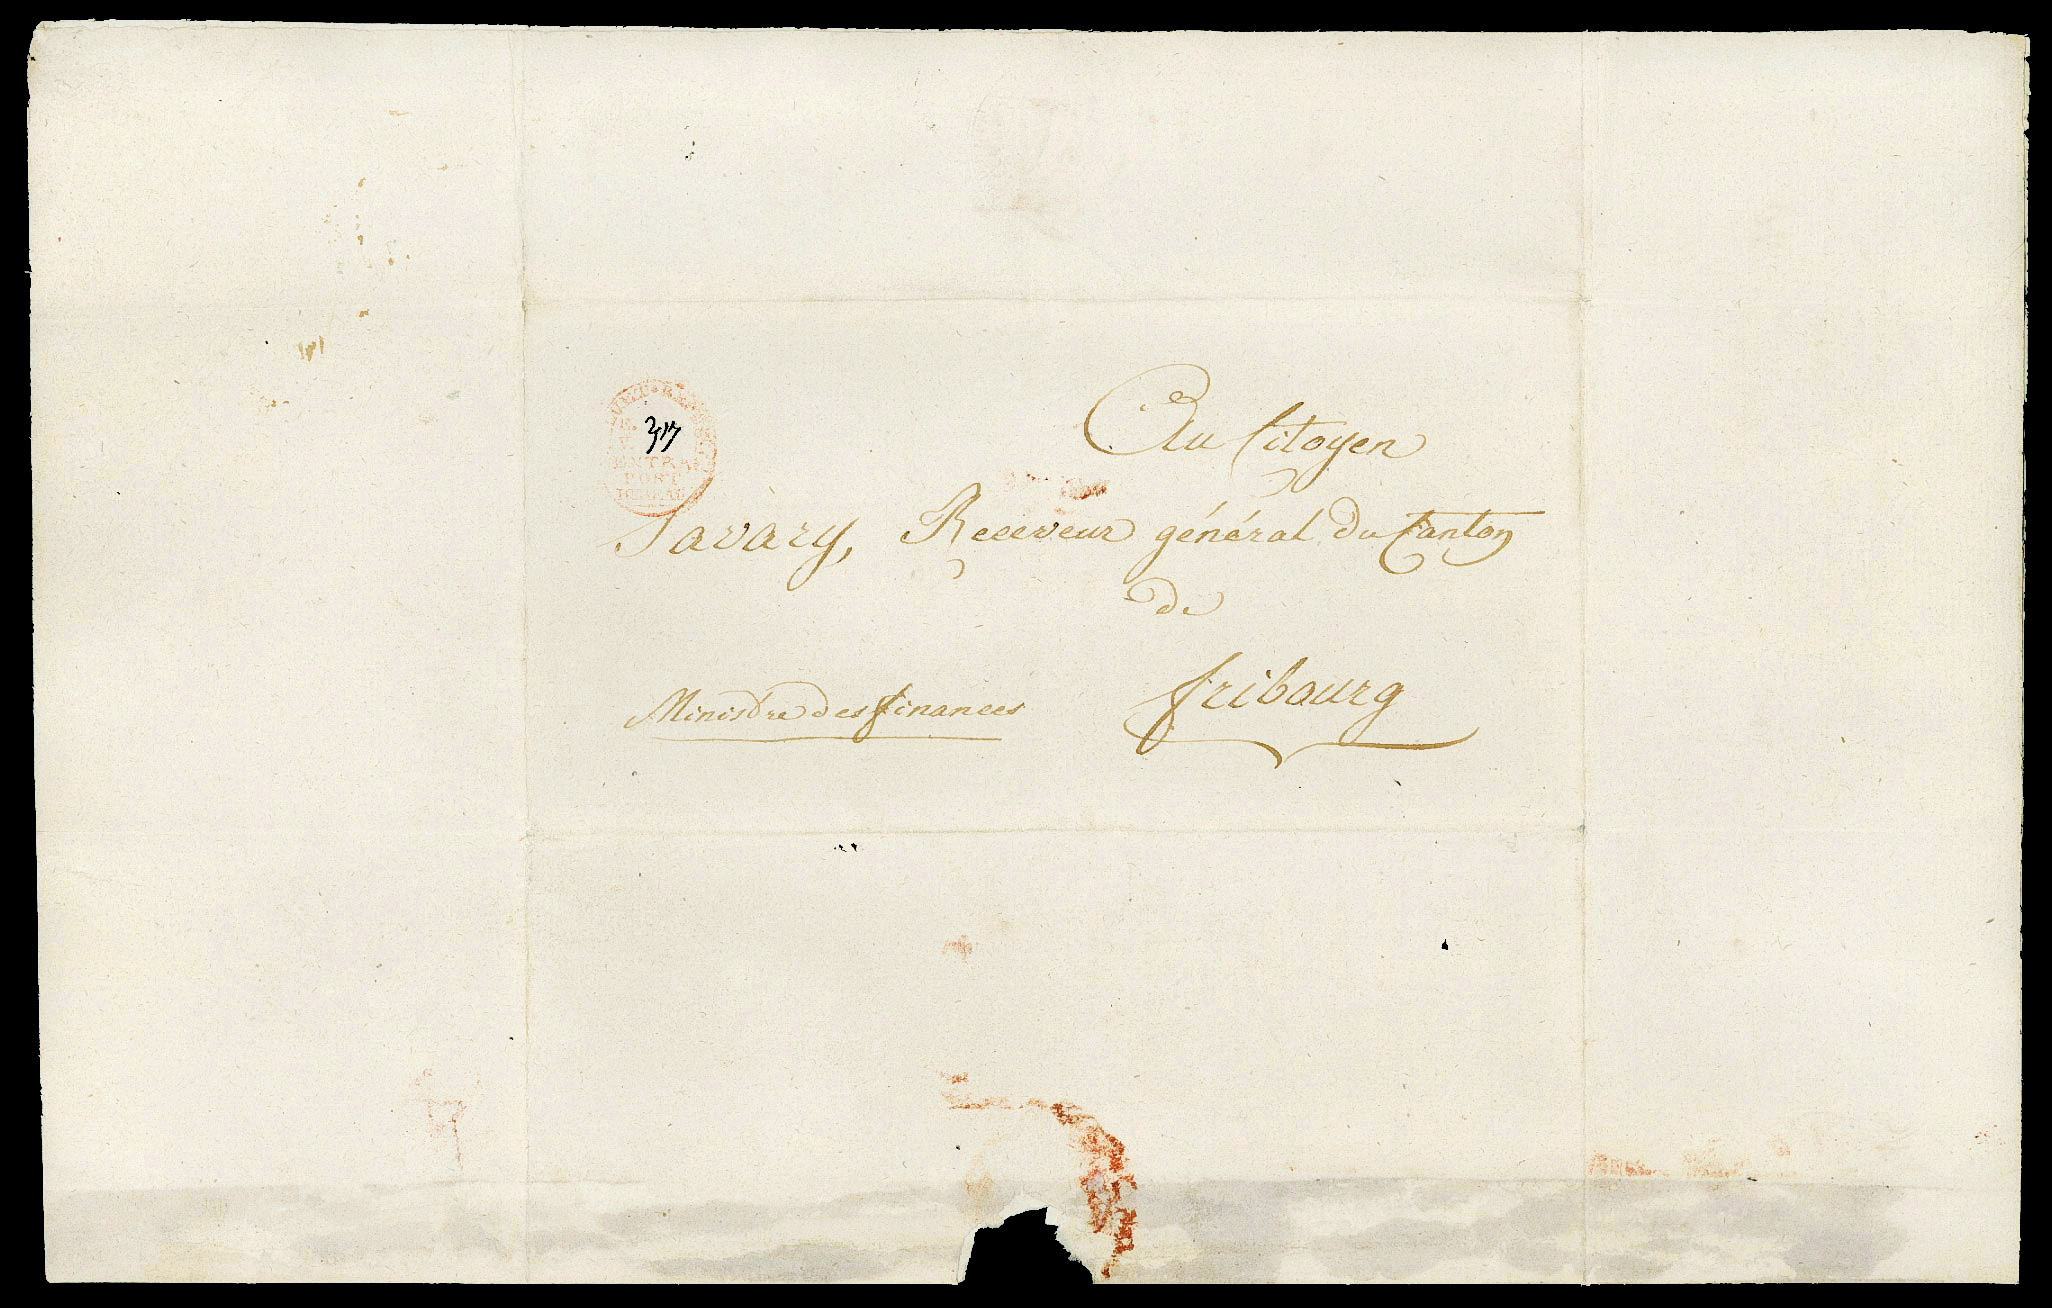 Au Citoyen
Savary, Receveur général du Canton
de
Fribourg
Ministre des finances
CENTRAL
POST
BUREAU